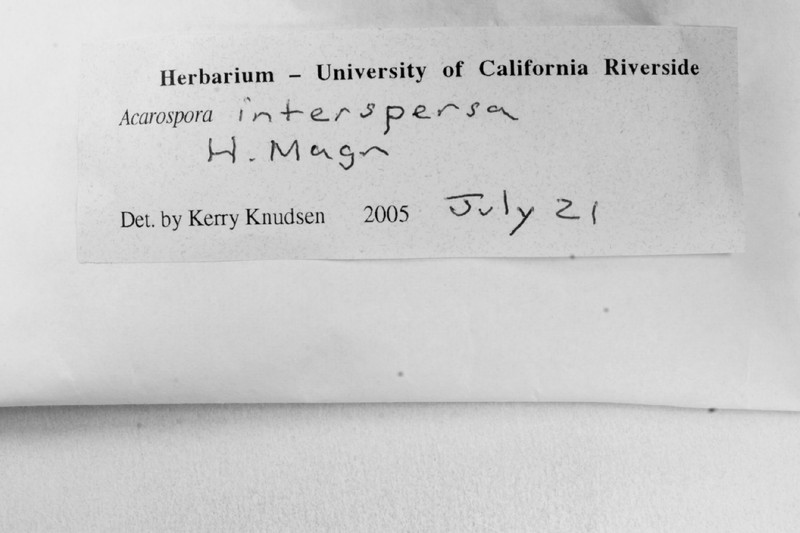 Herbarium – University of California Riverside
Acarospora interspersa
H. Magn
Det. by Kerry Knudsen 2005 July 21